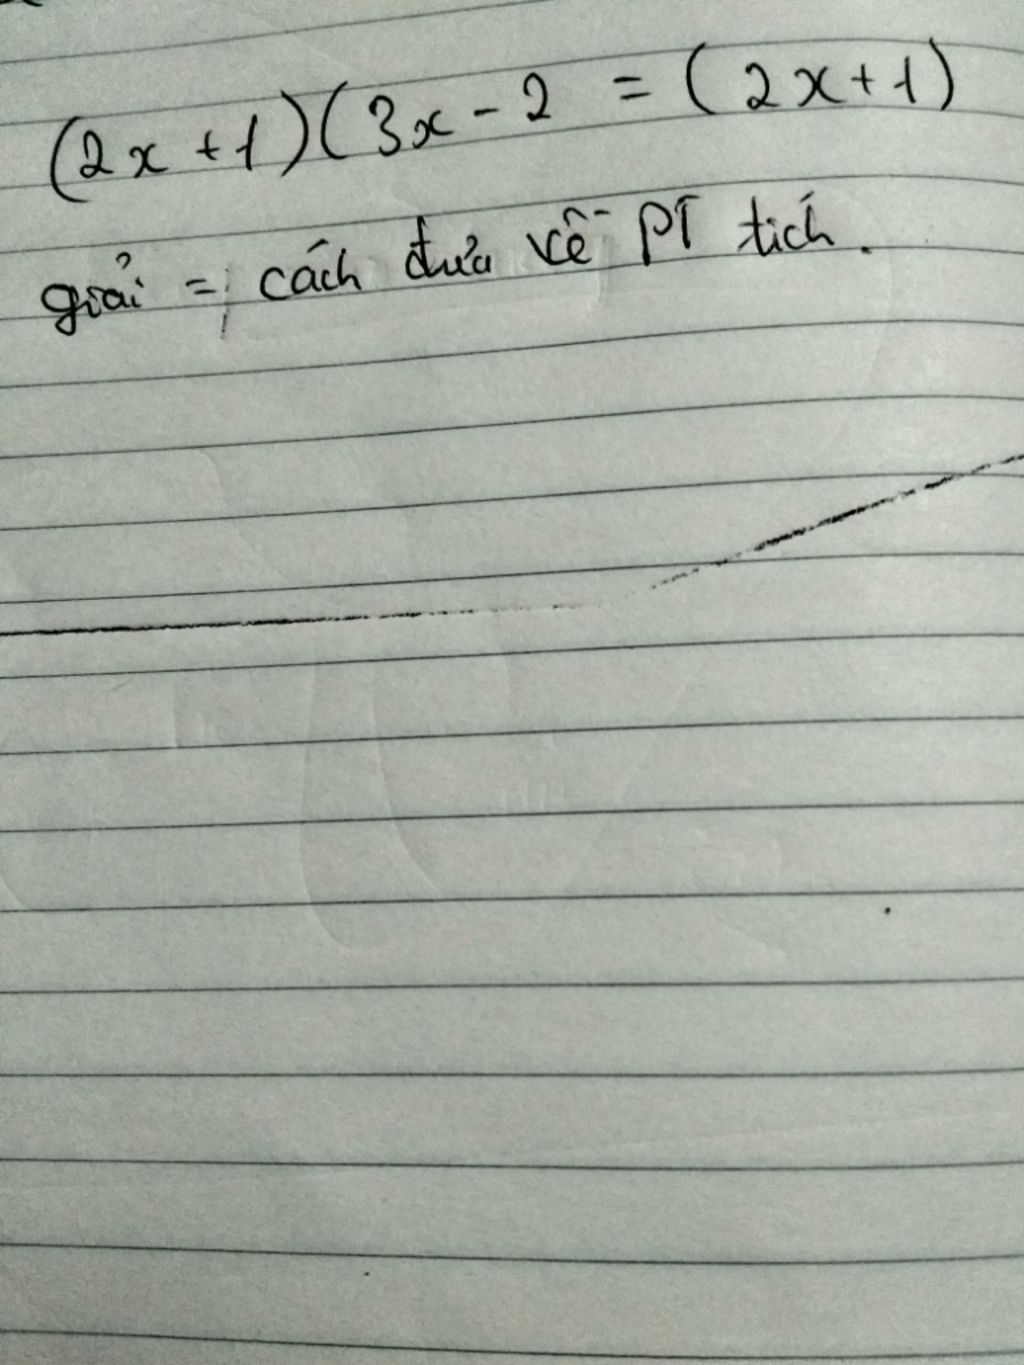 (2x + 1)(3x - 2 = (2x + 1)
giải = cách đưa về PT tích.